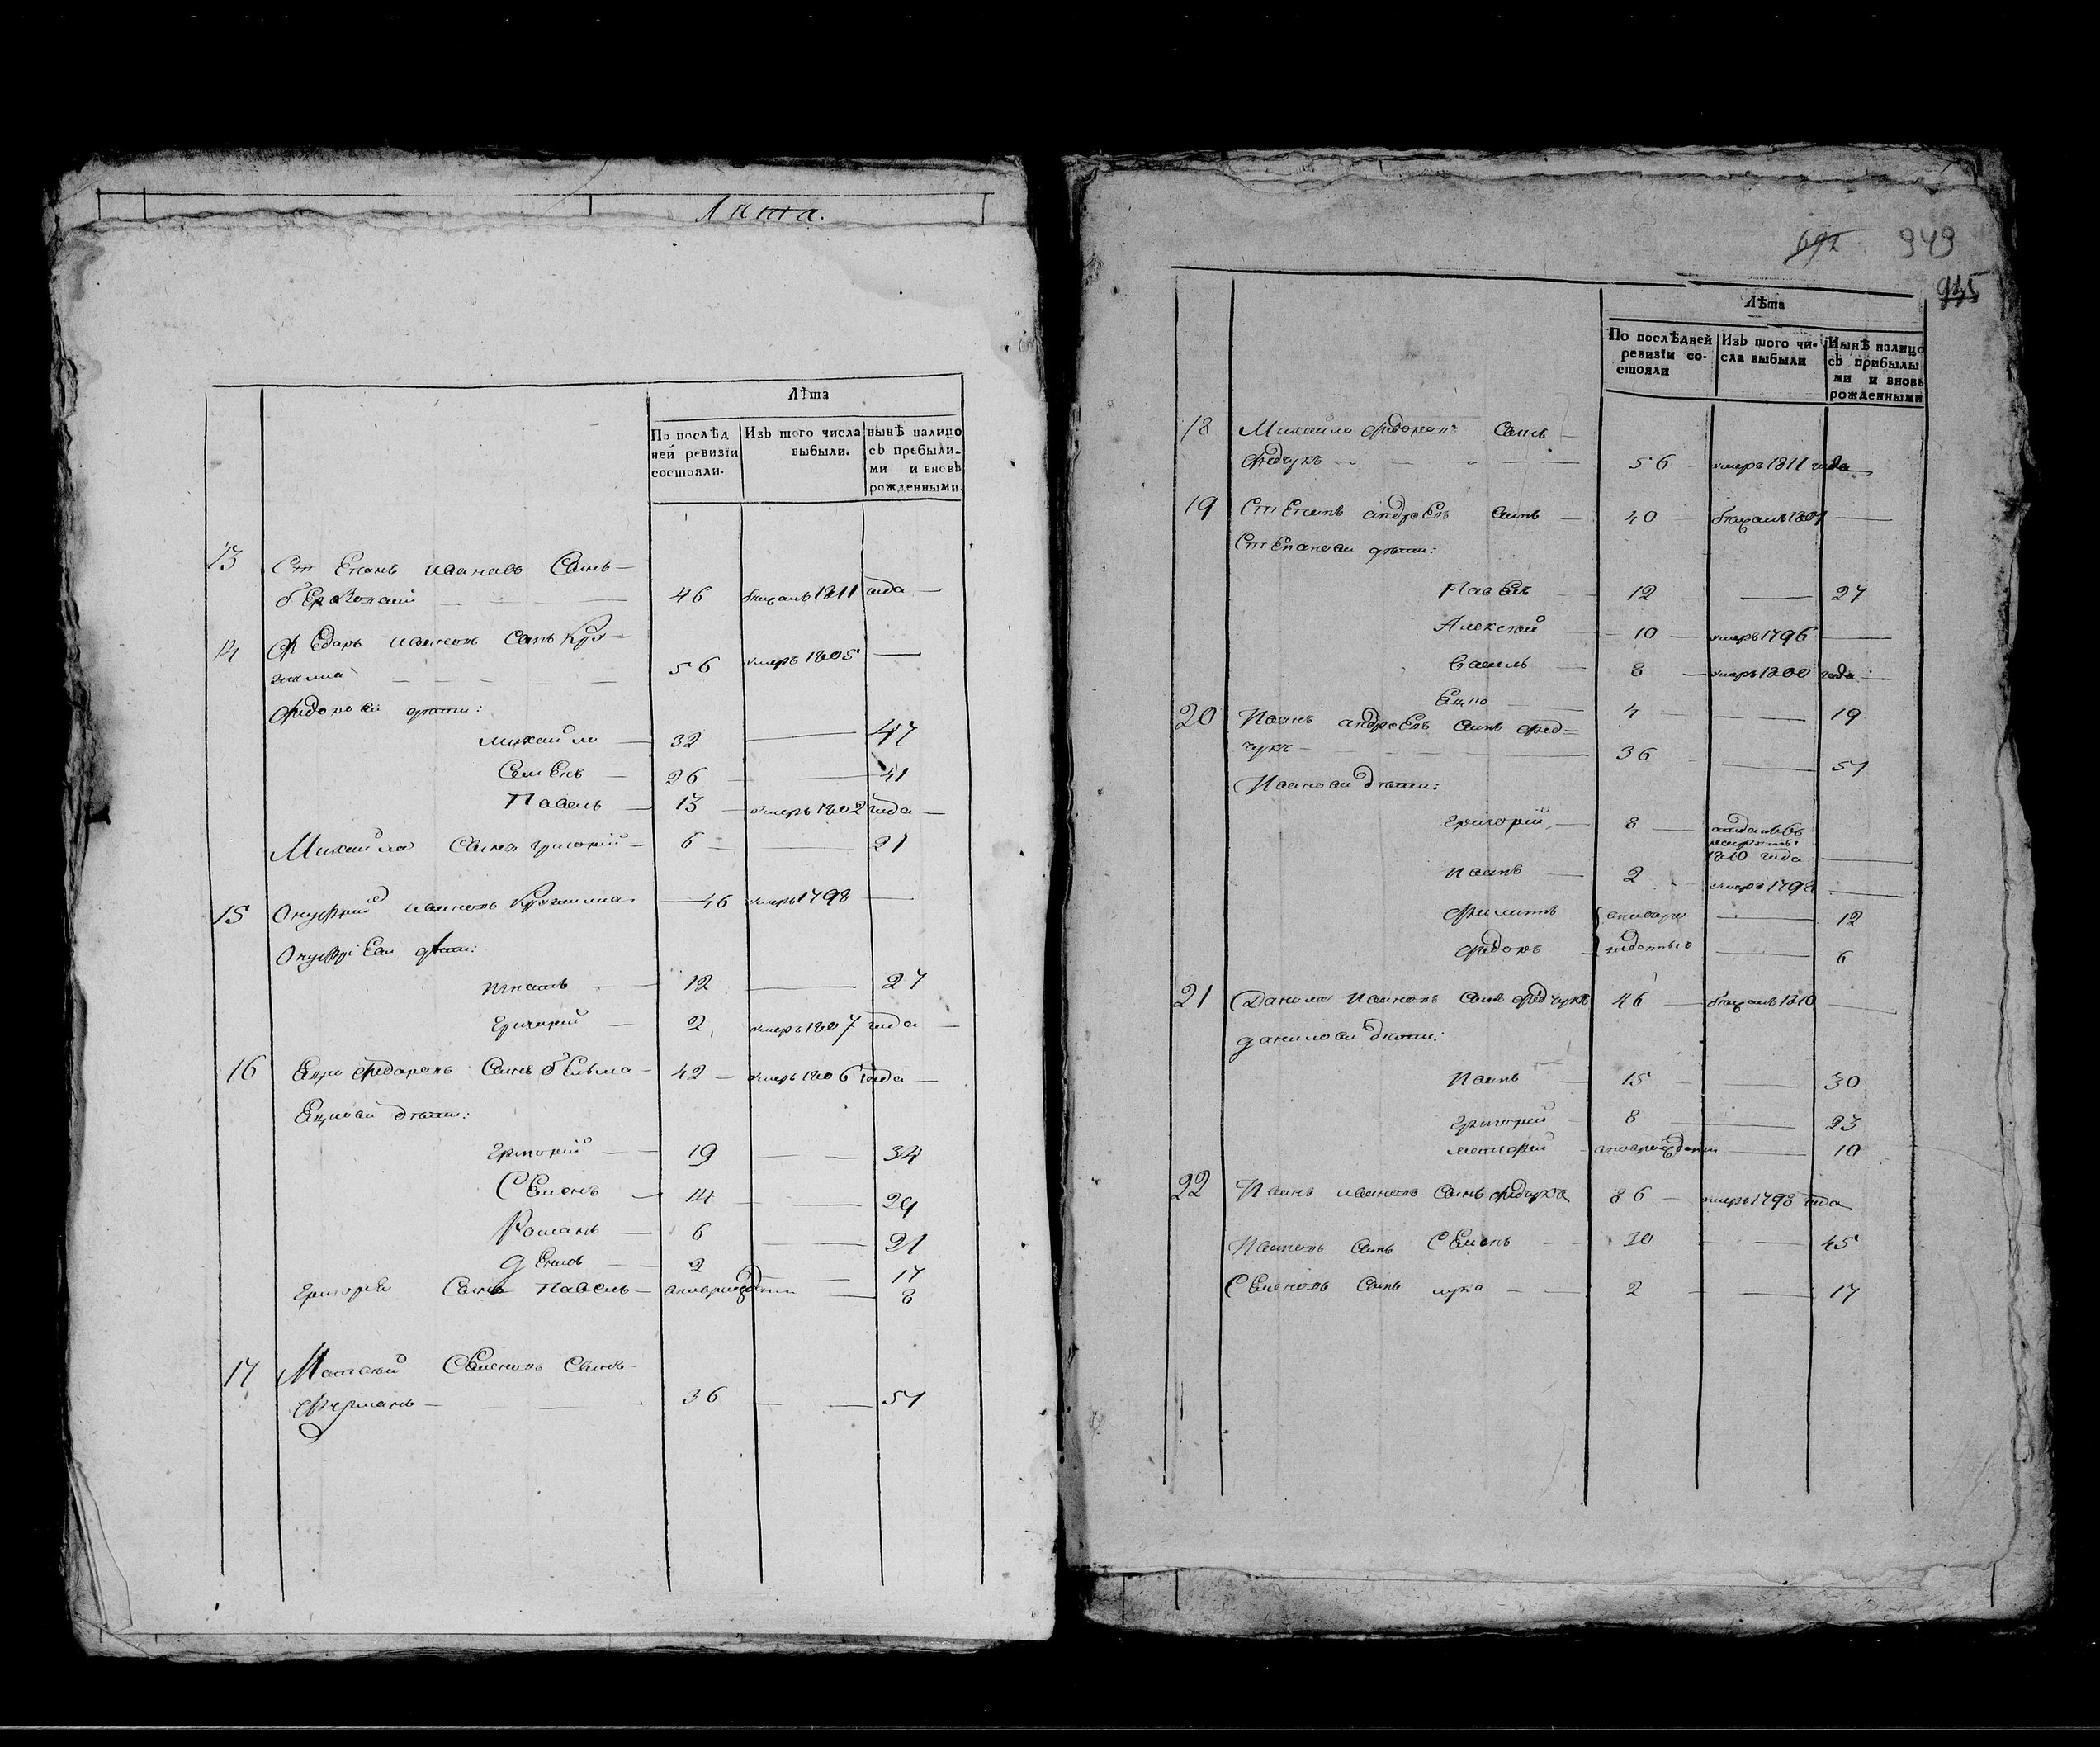 Лита.
Лѣта
По послѣд
ней ревизїи
состояли.
Изъ того числа
выбыли.
нынѣ налицо
съ пребыли-
ми и вновь
рожденными.
13 Степанъ Ивановъ Сынъ —
46 бѣжалъ 1811 года —
14 Федоръ Ивановъ Сынъ
56 умеръ 1805 —
Федоровы дѣти:
Михайло — 32 — 47
Семенъ — 26 — 41
Павелъ — 13 — умеръ 1802 года —
Михайла Сынъ Григорий — 6 — 21
15 Онуфрий Ивановъ — 46 умеръ 1798 —
Онуфрiевы дѣти:
Игнатъ — 12 — 27
Григорий — 2 умеръ 1807 года —
16 Ецко Федоровъ Сынъ — 42 — умеръ 1806 года —
Ецковы дѣти:
Григорий — 19 — — 34
Семенъ — 14 — 29
Романъ — 6 — 21
Демко — 2 — 17
Григорiя Сынъ Павелъ — вновьрожденъ — 8
17 Матвей Семеновъ Сынъ
36 — — 51
692 949
935
Лѣта
По послѣдней
ревизїи со-
стояли
Изъ того чи-
сла выбыли
Нынѣ налицо
съ прибылы
ми и вновь
рожденными
18 Михайло Федоровъ Сынъ —
Федчукъ — — 56 — умеръ 1811 года
19 Степанъ Андреевъ Сынъ — 40 — бѣжалъ 1801 —
Степановы дѣти:
Павелъ — 12 — 27
Алексей — 10 — умеръ 1796 —
Василь — 8 — умеръ 1800 года —
Ецко — 4 — 19
20 Иванъ Андреевъ Сынъ Фед=
чукъ — 36 — 51
Ивановы дѣти:
Григорий — 8 — отданъ въ
рекруты
1810 года —
Иванъ — 2 умеръ 1798 —
Филипъ вновьро — 12
Федоръ жденные — 6
21 Данило Ивановъ Сынъ Федчукъ 46 — бѣжалъ 1810 —
Даниловы дѣти:
Иванъ — 15 — 30
Григорий — 8 — 23
вновьрожденъ — 10
22 Иванъ Ивановъ Сынъ Федчукъ 86 — умеръ 1798 года
Ивановъ Сынъ Семенъ — 30 — 45
Семеновъ Сынъ Лука — 2 — 17